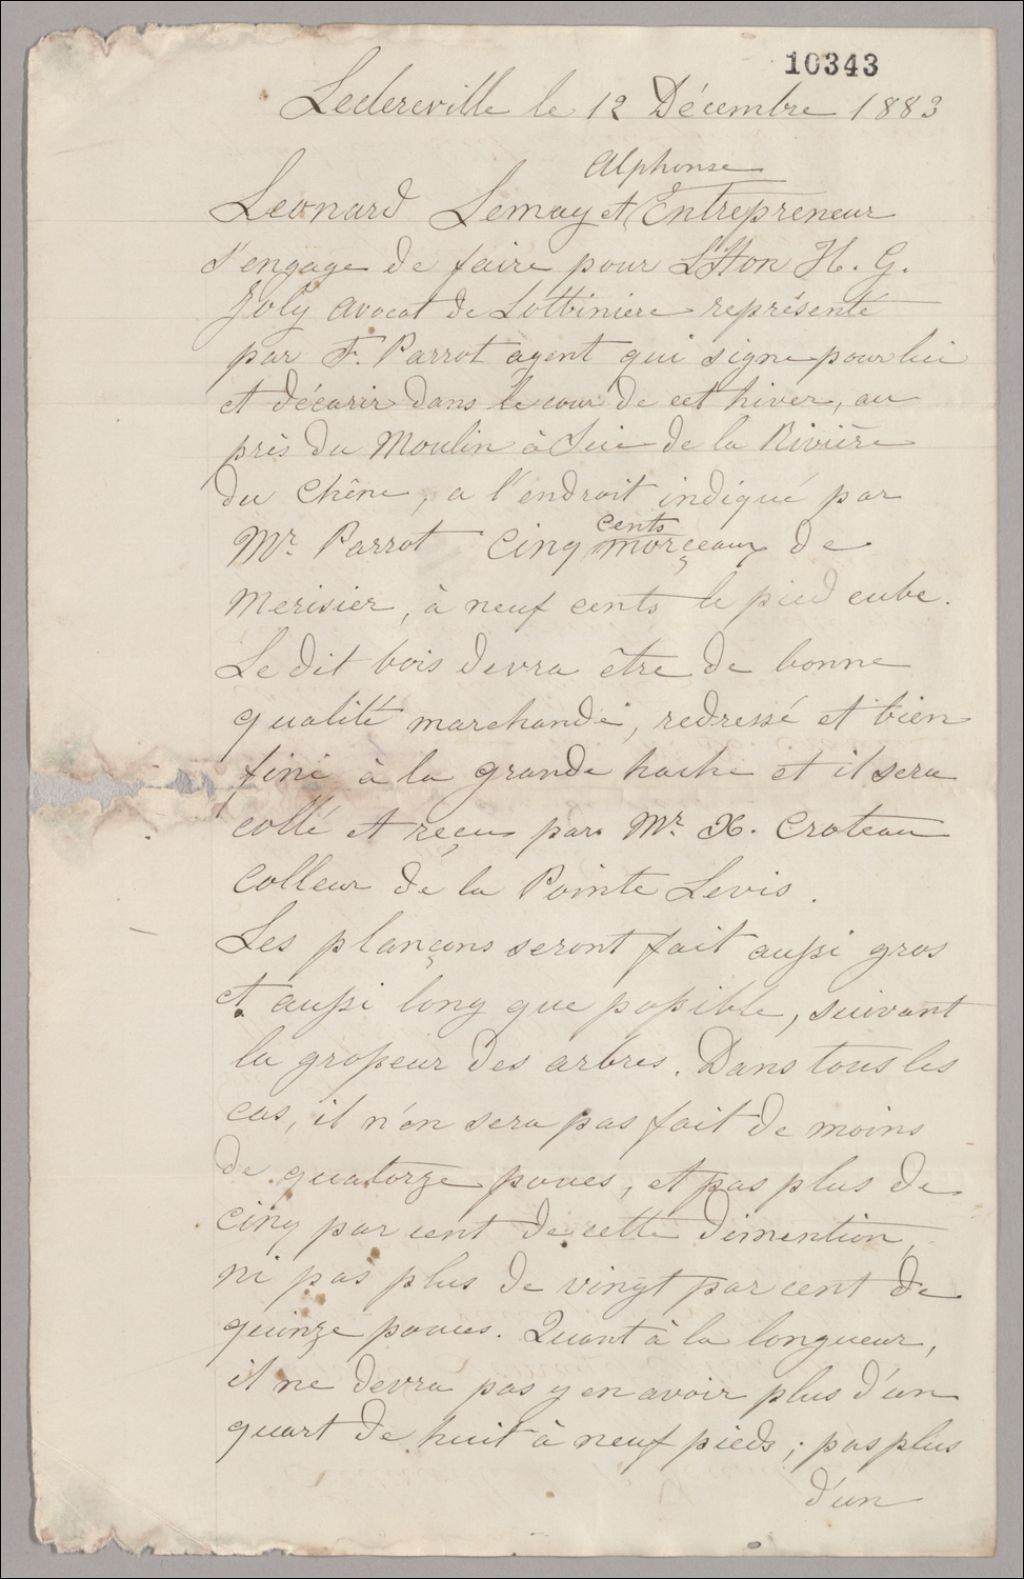 10343
Leclereville le 12 Décembre 1883
Alphonse
Leonard Lemay et Entrepreneur
s'engage de faire pour L'Hon H. G.
Joly avocat de Lotbiniere représenté
par F. Parrot agent qui signe pour lui
et décarir dans le cour de cet hiver, au
près du Moulin à Scie de la Rivière
du Chêne, a l'endroit indiqué par
cents
Mr. Parrot Cinq morçeaux de
Merisier, à neuf cents le pied cube.
Le dit bois devra être de bonne
qualité marchande, redressé et bien
fini à la grande hache et il sera
collé et reçu par Mr. X. Croteau
Colleur de la Pointe Levis.
Les plançons seront fait aussi gros
et aussi long que possible, suivant
la grosseur des arbres. Dans tous les
cas, il n'en sera pas fait de moins
de quatorze pouces, et pas plus de
Cinq par cent de cette dimention,
ni pas plus de vingt par cent de
quinze pouces. Quant à la longueur,
il ne devra pas y en avoir plus d'un
quart de huit à neuf pieds; pas plus
d'un